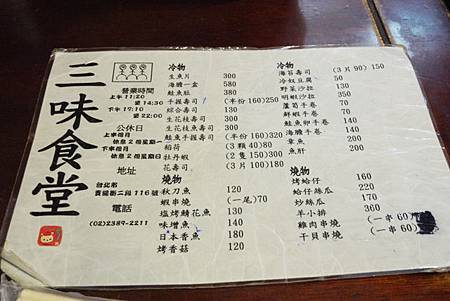 三味食堂
營業時間
上午 11:20
至 14:30
下午 17:10
至 22:00
公休日
上半個月
休息2個星期一
下半個月
休息2個星期日
地址
貴陽街二段116號
電話
(02)2389-2211
冷物
生魚片 300
海膽一盒 580
鮭魚肚 380
手握壽司 (半份160)250
綜合壽司 130
生花枝壽司 200
生花枝魚壽司
鮭魚手握壽司 (半份160)320
稻荷 (3顆40)80
牡丹蝦 (2隻150)300
花壽司 (3片100)180
燒物
秋刀魚 120
蝦串燒 (一尾)70
塩烤鯖花魚 130
味增魚 140
日本香魚 180
烤香菇 120
冷物
海苔壽司 (3片90)150
冷奴豆腐 50
野菜沙拉 130
明蝦沙拉 200
蘆筍手卷 70
鮮蝦手卷
鮭魚卵手卷
海膽手卷
章魚
魚肝
燒物
烤蛤仔 160
蛤仔絲瓜 220
炒絲瓜 170
羊小排 360
雞肉串燒 (一串60)
干貝串燒 (一串60)